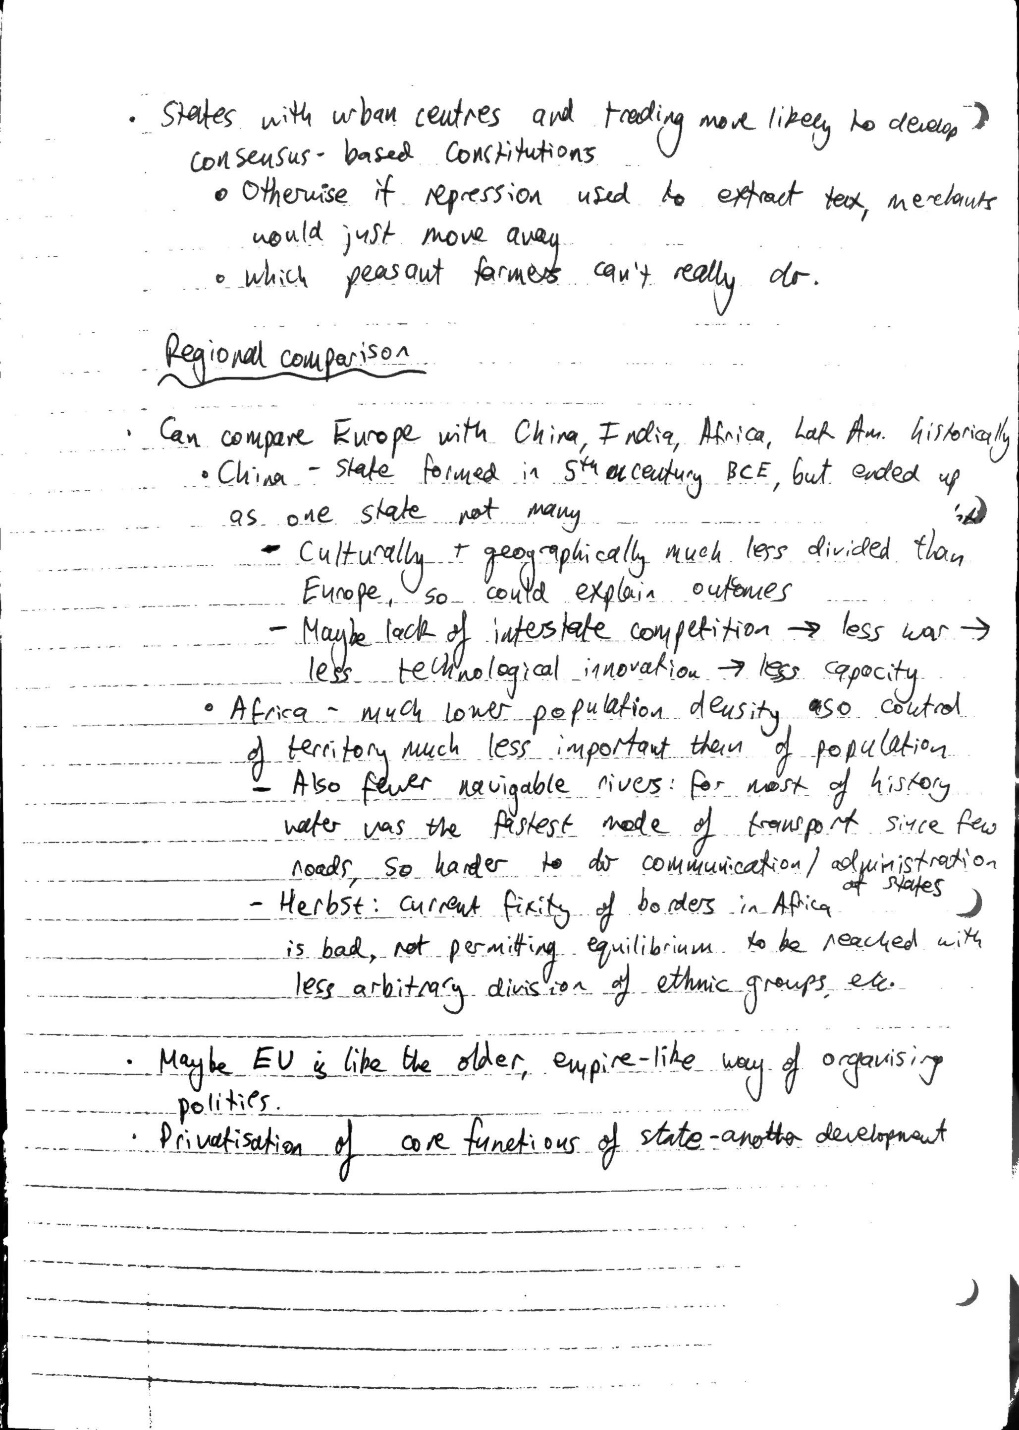 • States with urban centres and trading more likely to develop
consensus-based constitutions
o Otherwise if repression used to extract tax, merchants
would just move away
o which peasant farmers can't really do.
Regional comparison
• Can compare Europe with China, India, Africa, Lat Am. historically
• China - state formed in 5th century BCE, but ended up
as one state not many
- Culturally + geographically much less divided than
Europe, so could explain outcomes
- Maybe lack of interstate competition → less war →
less technological innovation → less capacity
• Africa - much lower population density so control
of territory much less important than of population
- Also fewer navigable rivers: for most of history
water was the fastest mode of transport since few
roads, so harder to do communication/administration
of states
- Herbst: current fixity of borders in Africa
is bad, not permitting equilibrium to be reached with
less arbitrary division of ethnic groups, etc.
• Maybe EU is like the older, empire-like way of organising
polities.
• Privatisation of core functions of state - another development